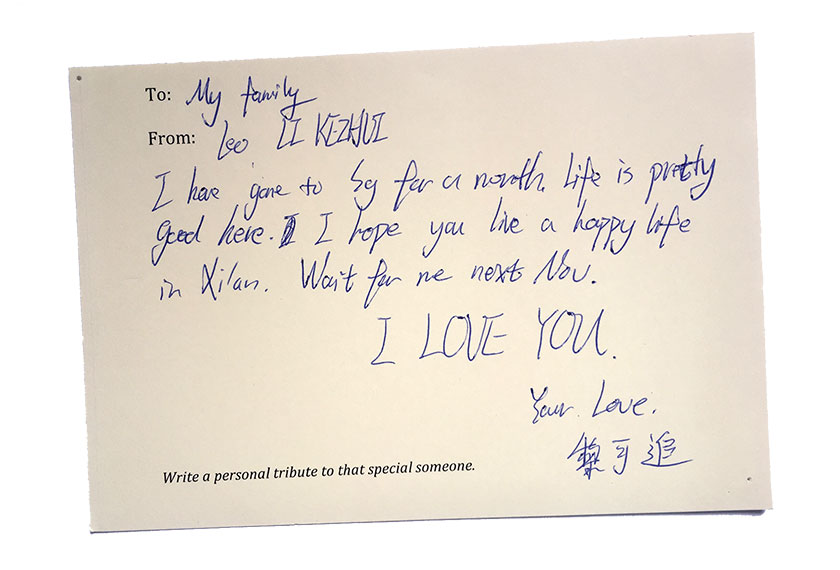 To: My family
From: Leo LI KEZHUI
I have gone to Sg for a month. Life is pretty
good here. I hope you live a happy life
in Xilan. Wait for me next Nov.
I LOVE YOU.
Your Love.
黎可追
Write a personal tribute to that special someone.